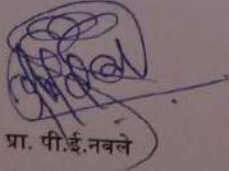 प्रा. पी.ई.नवले